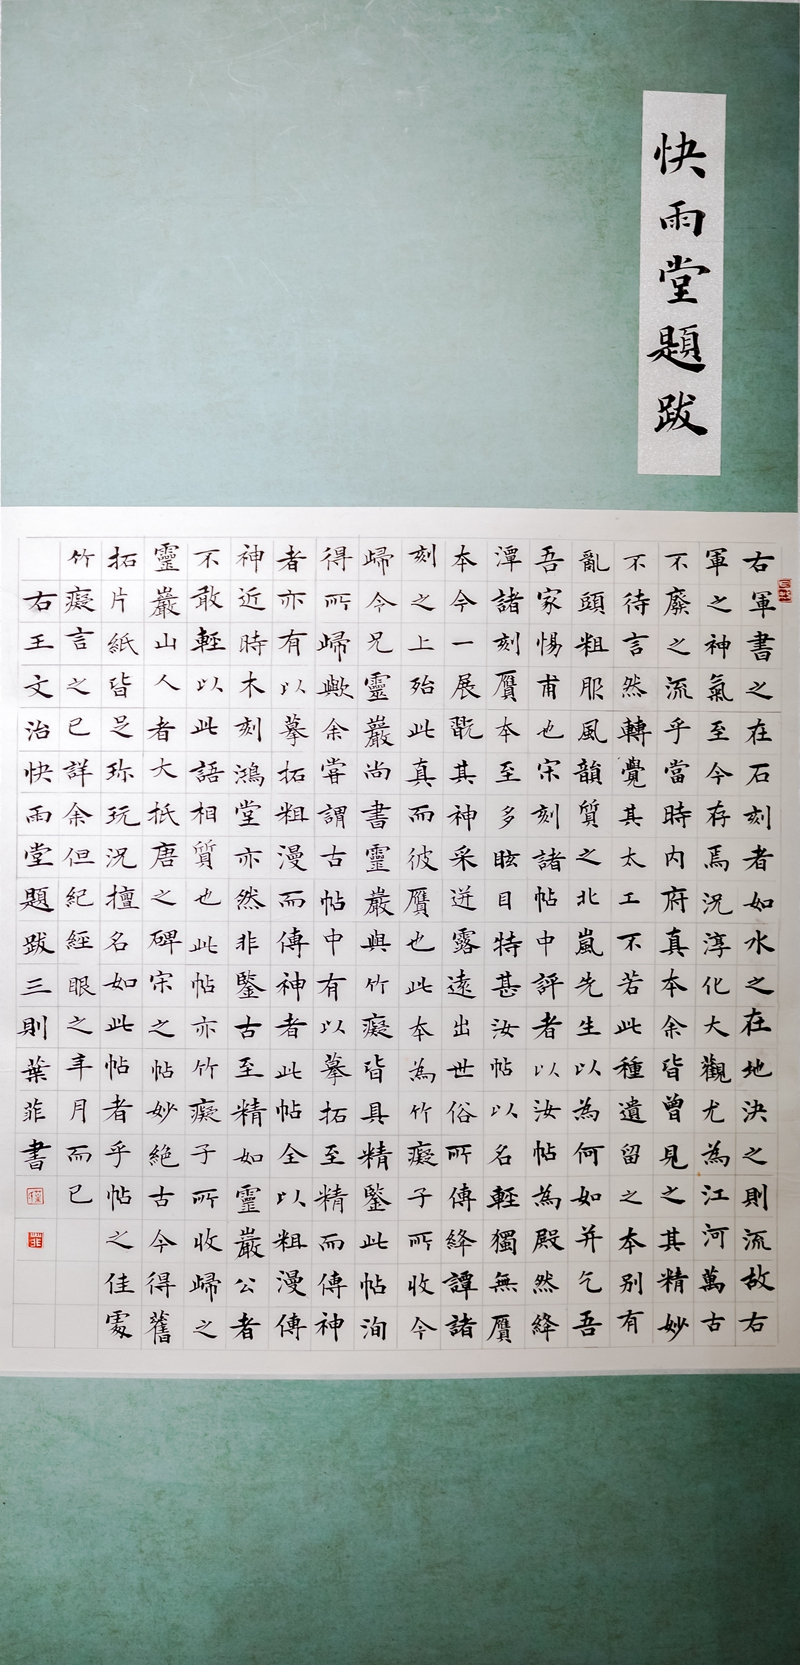 快雨堂題跋
右軍書之在石刻者如水之在地決之則流故右
軍之神氣至今存焉況淳化大觀尤為江河萬古
不廢之流乎當時內府真本余皆曾見之其精妙
不待言然轉覺其太工不若此種遺留之本別有
亂頭粗服風韻質之北嵐先生以為何如并乞吾
吾家惕甫也宋刻諸帖中評者以汝帖為殿然絳
潭諸刻贋本至多眩目特甚汝帖以名輕獨無贋
本今一展翫其神采迸露遠出世俗所傳絳譚諸
刻之上殆此真而彼贋也此本為竹癡子所收今
歸今兄靈巖尚書靈巖與竹癡皆具精鑒此帖洵
得所歸歟余嘗謂古帖中有以摹拓至精而傳神
者亦有以摹拓粗漫而傳神者此帖全以粗漫傳
神近時木刻鴻堂亦然非鑒古至精如靈巖公者
不敢輕以此語相質也此帖亦竹癡子所收歸之
靈巖山人者大抵唐之碑宋之帖妙絕古今得舊
拓片紙皆足珎玩況擅名如此帖者乎帖之佳處
竹癡言之已詳余但紀經眼之年月而已
右王文治快雨堂題跋三則葉菲書